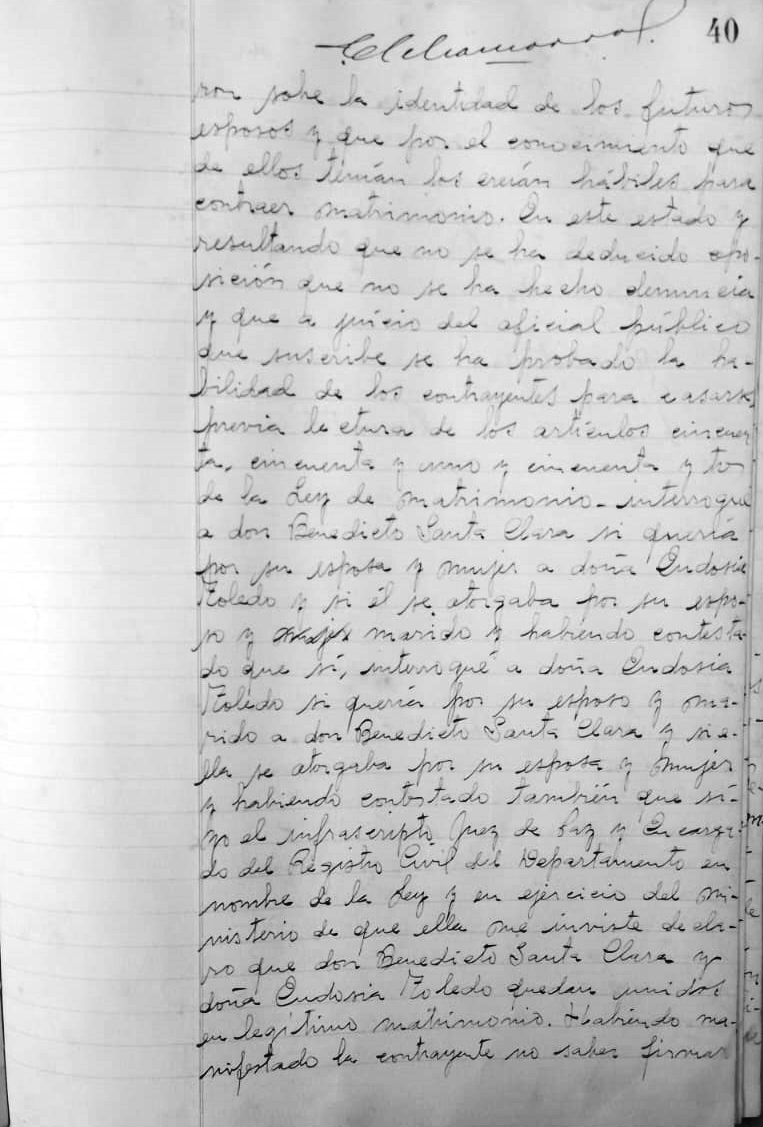 40
ron sobre la identidad de los futuros
esposos y que por el conocimiento que
de ellos tenían los creían hábiles para
contraer matrimonio. En este estado y
resultando que no se ha deducido opo-
sición que no se ha hecho denuncia
y que a juicio del oficial público
que suscribe se ha probado la ha-
bilidad de los contrayentes para casarse
previa lectura de los artículos cincuen
ta, cincuenta y uno y cincuenta y
de la Ley de matrimonio - interrogué
a don Benedicto Santa Clara si quería
por su esposa y mujer a doña Eudosia
Toledo y si él se otorgaba por su espo-
so y marido y habiendo contesta-
do que sí, interrogué a doña Eudosia
Toledo si quería por su esposo y ma-
rido a don Benedicto Santa Clara y si e-
lla se otorgaba por su esposa y mujer
y habiendo contestado también que sí-
yo el infrascripto Juez de Paz y Encarga-
do del Registro Civil del Departamento en
nombre de la Ley y en ejercicio del mi-
nisterio de que ella me inviste decla-
ro que don Benedicto Santa Clara y
doña Eudosia Toledo quedan unidos
en legítimo matrimonio. Habiendo ma-
nifestado la contrayente no saber firmar